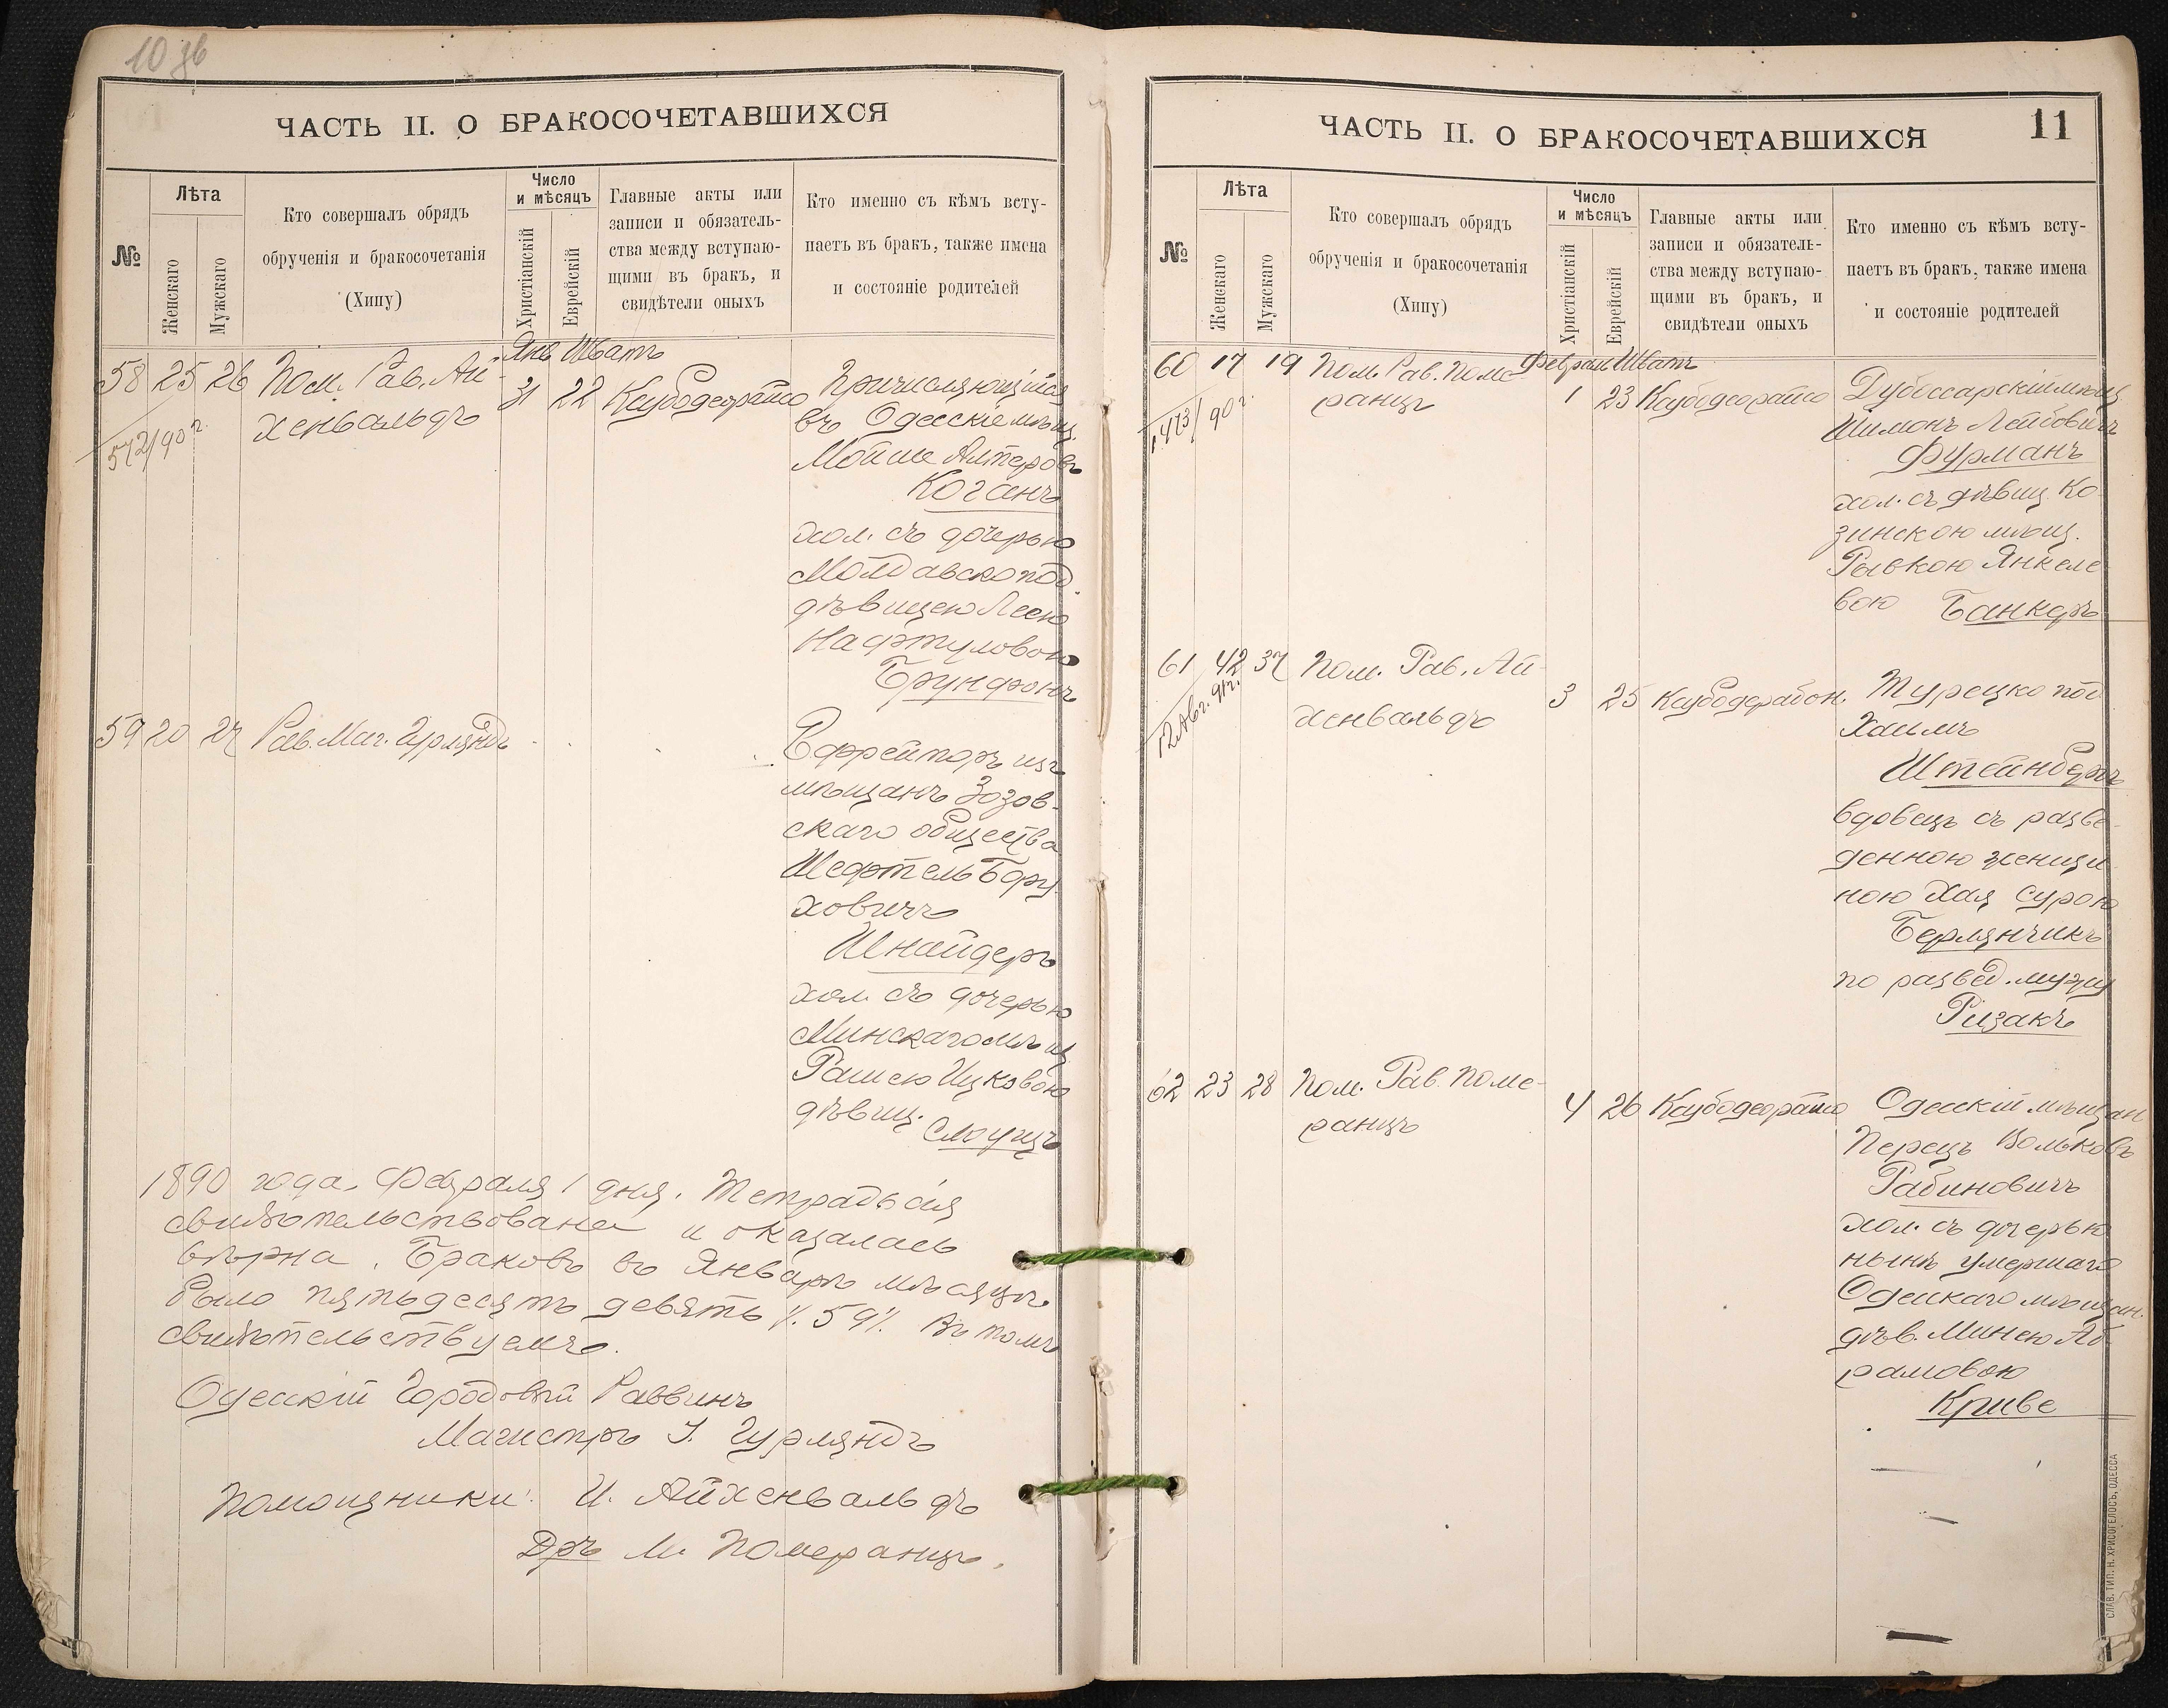 10 зв
ЧАСТЬ II. О БРАКОСОЧЕТАВШИХСЯ
№
Лѣта
Женскаго
Мужскаго
Кто совершалъ обрядъ
обрученія и бракосочетанія
(Хипу)
Число
и мѣсяцъ
Христіанскій
Еврейскій
Главные акты или
записи и обязатель-
ства между вступаю-
щими въ бракъ, и
свидѣтели оныхъ
Кто именно съ кѣмъ всту-
паетъ въ бракъ, также имена
и состояніе родителей
Янв Шватъ
58 25 26 Пом. Рав. Ай-
хенвальдъ
31 22
572/90 г.
Причисляющійся
въ Одесскіе мѣщ.
Мойше Алтеровъ
Коганъ
хол. съ дочерью
Молдавско под.
дѣвицею Леею
Нафтуловою
59 20 27 Рав. Маг. Гурляндъ
Ефрейторъ изъ
мѣщанъ Зозов-
скаго общества
Шефтель Бору-
ховичъ
Шнайдеръ
хол. съ дочерью
Минскаго мѣщ
Рашею Ицковою
дѣвиц.
Слоущъ
1890 года, Февраля 1 дня. Тетрадь сія
свидѣтельствована и оказалась
вѣрна. Браковъ въ Январѣ мѣсяцѣ
было пятьдесятъ девять ٪ 59 ٪. Въ томъ
свидѣтельствуемъ.
Одесскій Городовый Раввинъ
Магистръ I. Гурляндъ
Помощники: И. Айхенвальдъ
Дръ М. Померанцъ.
11
ЧАСТЬ II. О БРАКОСОЧЕТАВШИХСЯ
№
Лѣта
Женскаго
Мужскаго
Кто совершалъ обрядъ
обрученія и бракосочетанія
(Хипу)
Число
и мѣсяцъ
Христіанскій
Еврейскій
Главные акты или
записи и обязатель-
ства между вступаю-
щими въ бракъ, и
свидѣтели оныхъ
Кто именно съ кѣмъ всту-
паетъ въ бракъ, также имена
и состояніе родителей
Феврал Шватъ
60 17 19 Пом. Рав. Поме-
ранцъ
1 23
1473/90 г.
Дубоссарскій мѣщ
Шимонъ Лейбовичъ
Фурманъ
хол. съ дѣвиц. Ко-
зинскою мѣщ.
Рывкою Янкеле-
вою Банкеръ
61 42 37 Пом. Рав. Ай-
хенвальдъ
3 25
12 Авг. 91 г.
Турецко под
Хаимъ
Штейнбергъ
вдовецъ съ разве-
денною женщи-
ною Хая Сурою
Берлянчикъ
по развед. мужу
Ризакъ
62 23 28 Пом. Рав. Поме-
ранцъ
4 26
Одесскій мѣщан
Перецъ Вольковъ
Рабиновичъ
хол. съ дочерью
нынѣ умершаго
Одесскаго мѣщан.
дѣв. Минею Аб-
рамовою
Криве
СЛАВ. ТИП. Н. ХРИСОГЕЛОСЪ, ОДЕССА